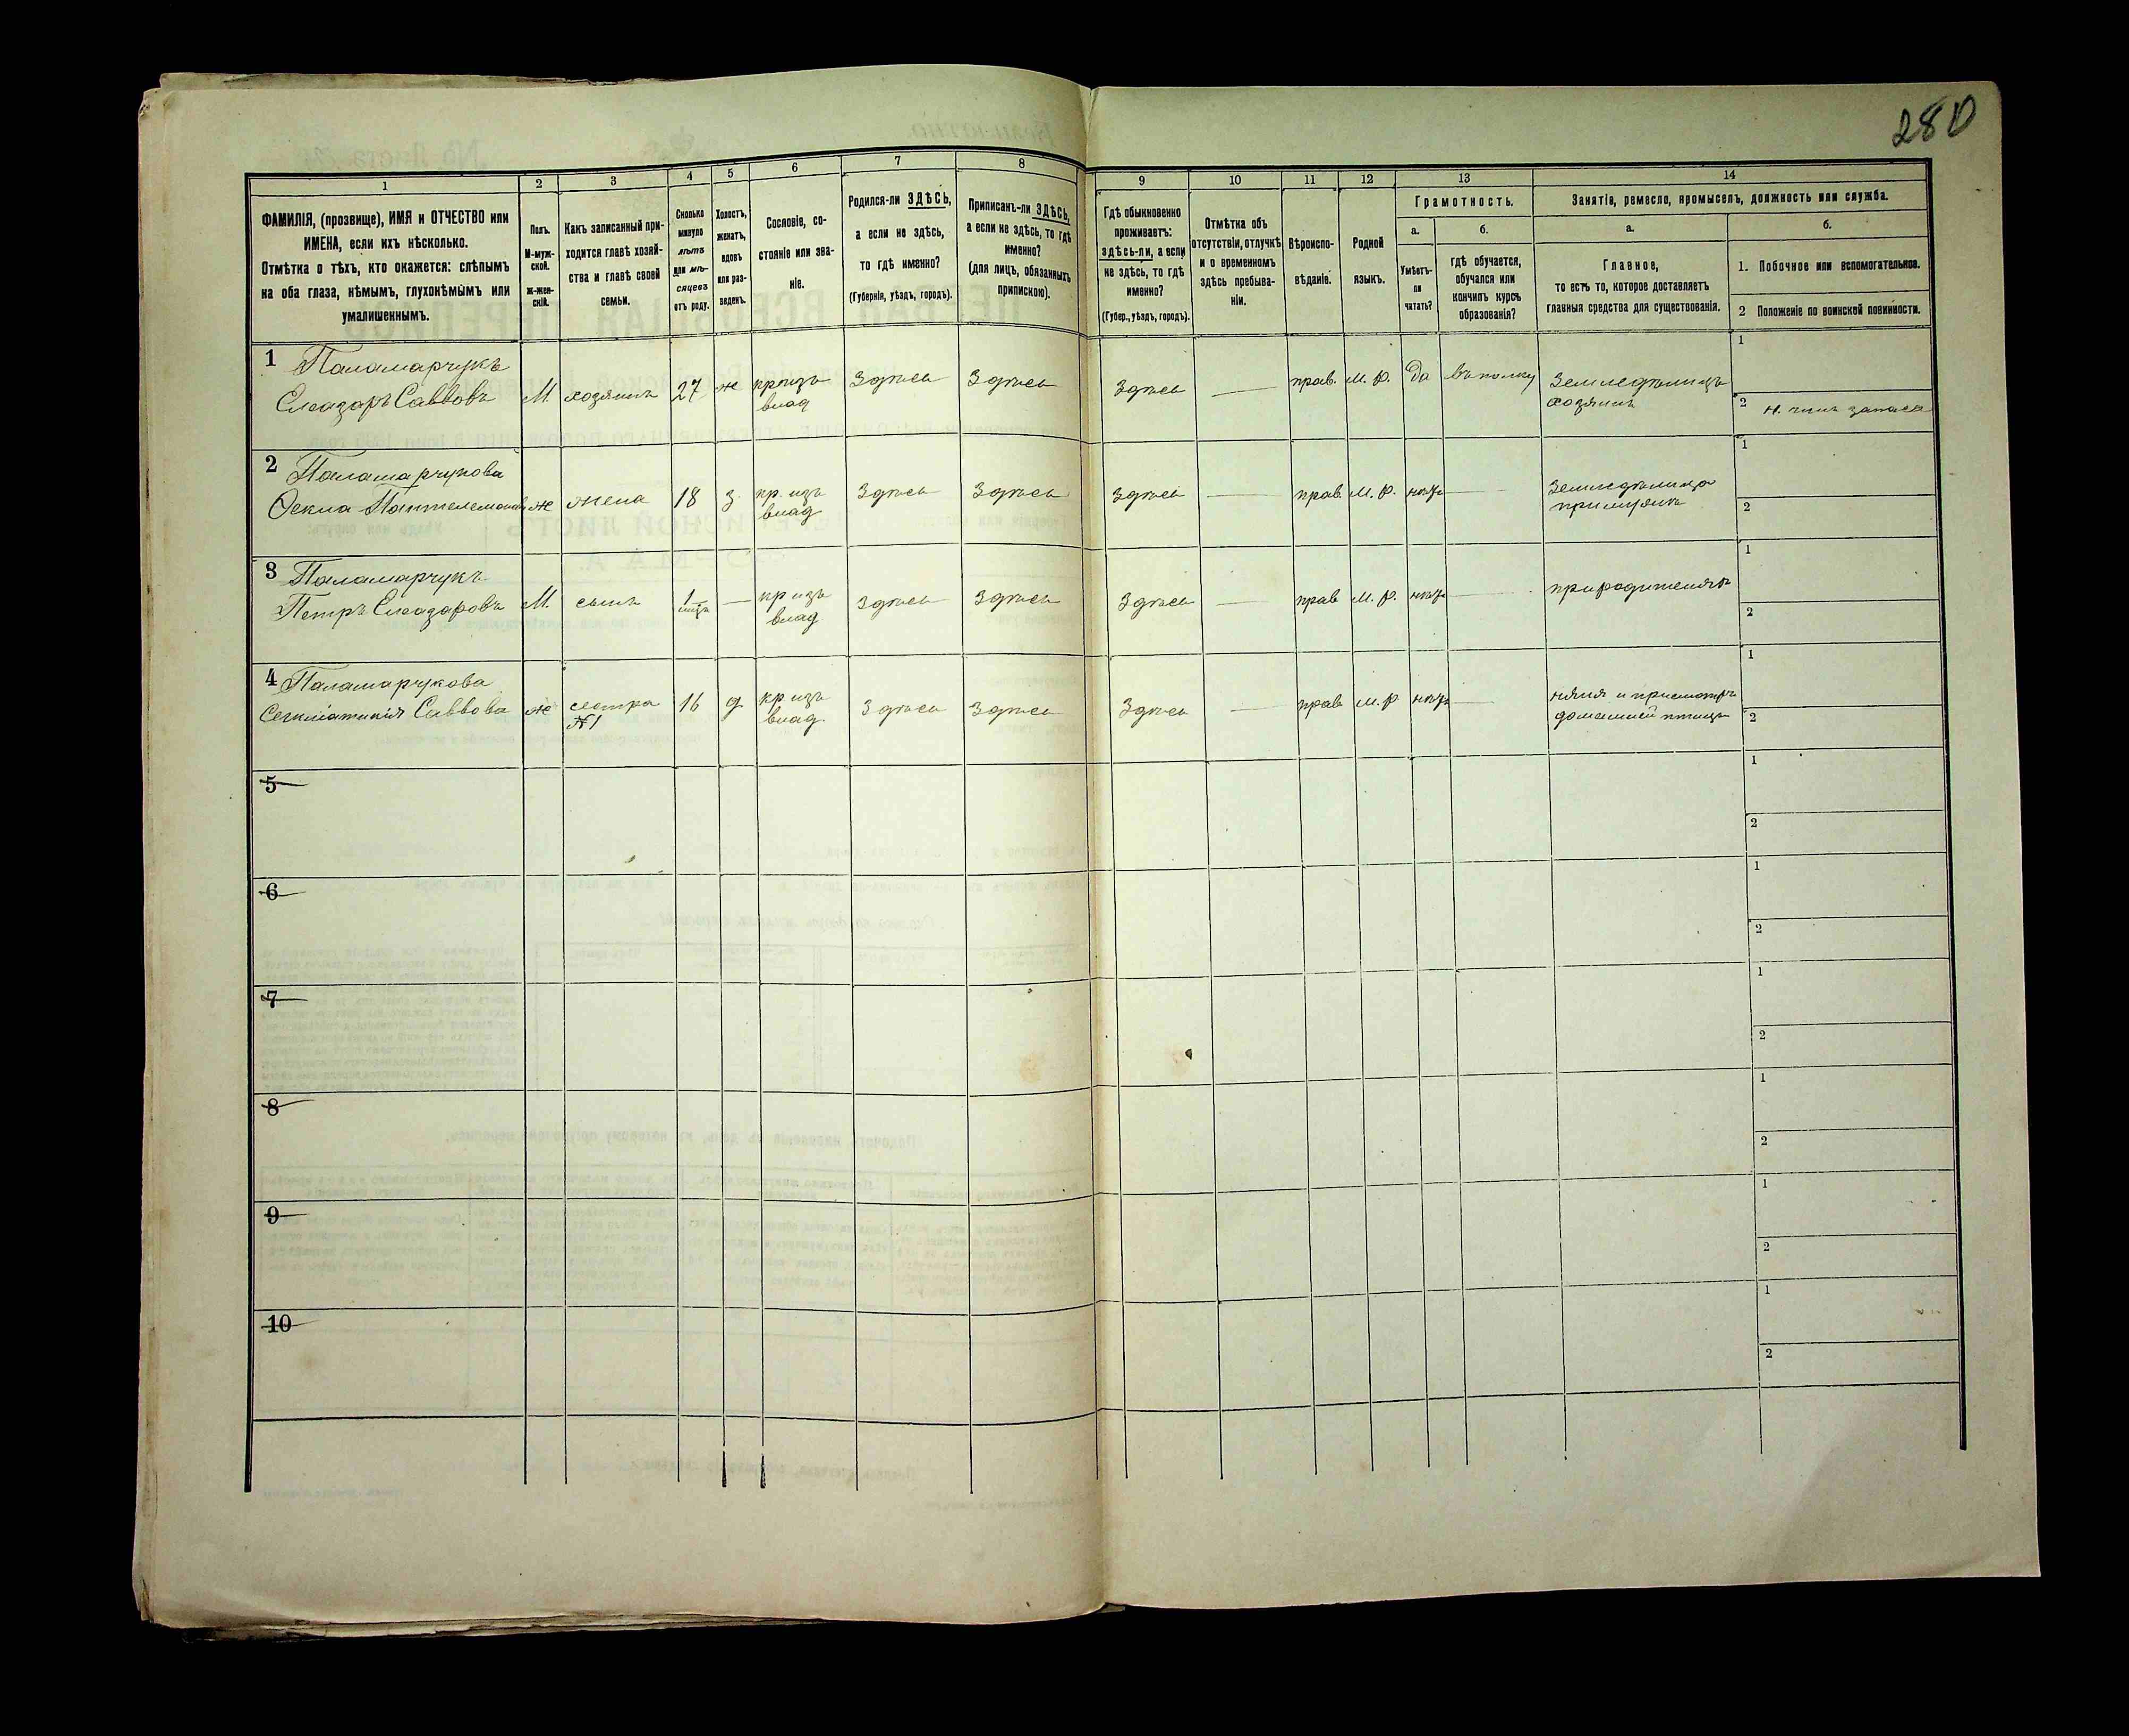 280
1
2
3
4
5
6
7
8
9
10
11
12
13
14
ФАМИЛІЯ, (прозвище), ИМЯ и ОТЧЕСТВО или
ИМЕНА, если ихъ нѣсколько.
Отмѣтка о тѣхъ, кто окажется: слѣпымъ
на оба глаза, нѣмымъ, глухонѣмымъ или
умалишеннымъ.
Полъ.
М-муж-
ской.
ж-жен-
скій.
Какъ записанный при-
ходится главѣ хозяй-
ства и главѣ своей
семьи.
Сколько
минуло
лѣтъ
или мѣ-
сяцевъ
отъ роду.
Холостъ,
женатъ,
вдовъ
или раз-
веденъ.
Сословіе, со-
стояніе или зва-
ніе.
Родился-ли ЗДѢСЬ,
а если не здѣсь,
то гдѣ именно?
(Губернія, уѣздъ, городъ).
Приписанъ-ли ЗДѢСЬ,
а если не здѣсь, то гдѣ
именно?
(для лицъ, обязанныхъ
припискою).
Гдѣ обыкновенно
проживаетъ:
здѣсь-ли, а если
не здѣсь, то гдѣ
именно?
(Губер., уѣздъ, городъ).
Отмѣтка объ
отсутствіи, отлучкѣ
и о временномъ
здѣсь пребыва-
ніи.
Вѣроиспо-
вѣданіе.
Родной
языкъ.
Грамотность.
а.
Умѣетъ-
ли
читать?
б.
гдѣ обучается,
обучался или
кончилъ курсъ
образованія?
Занятіе, ремесло, промыселъ, должность или служба.
а.
Главное,
то есть то, которое доставляетъ
главныя средства для существованія.
б.
1. Побочное или вспомогательное.
2 Положеніе по воинской повинности.
1 Паламарчукъ
Елеазаръ Саввовъ М. хозяинъ 27 ж кр. изъ влад Здѣсь Здѣсь Здѣсь — прав. м. р. да въ полку Земледѣлецъ хозяинъ
1
2 н. чинъ запаса
2 Паламарчукова
Фекла Пантелемонова ж жена 18 з. кр. изъ влад Здѣсь Здѣсь Здѣсь — прав м. р. нѣтъ — Земледѣлица при мужѣ
1
2
3 Паламарчукъ
Петръ Елеазаровъ М. сынъ 1 мѣц — кр изъ влад Здѣсь Здѣсь Здѣсь — прав м. р. нѣтъ — при родителяхъ
1
2
4 Паламарчукова
Саввова ж сестра №1 16 д кр изъ влад. Здѣсь Здѣсь Здѣсь — прав м. р нѣтъ — няня и присмотръ домашней птицы
1
2
5
1
2
6
1
2
7
1
2
8
1
2
9
1
2
10
1
2